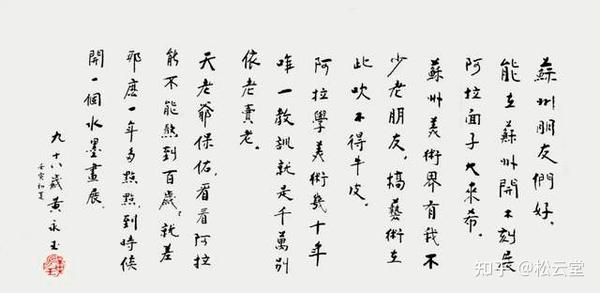 蘇州朋友們好。
能在蘇州開木刻展
阿拉面子大來希。
蘇州美術界有我不
少老朋友,搞藝術在
此吹不得牛皮。
阿拉學美術幾十年
唯一教訓就是千萬別
依老賣老。
天老爺保佑,看看阿拉
能不能熬到百歲,就差
那麽一年多點點,到時候
開一個水墨畫展。
九十八歲黃永玉
壬寅初夏
知乎 @松云堂